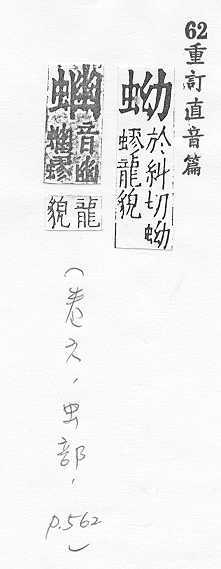 62重訂直音篇
蚴
於糾切蚴
蟉龍貌
音幽
蟉
龍
貌
(卷六,虫部,p.562)